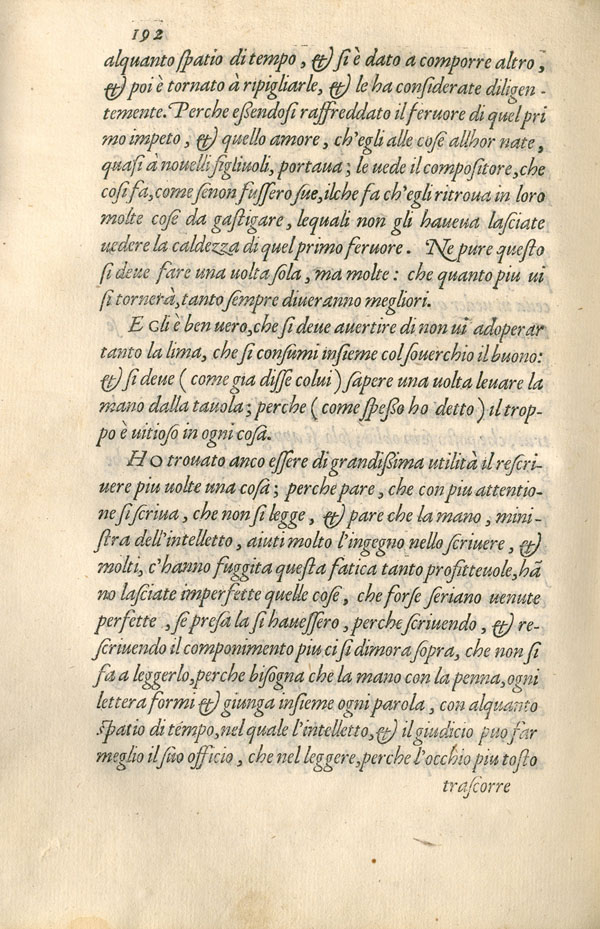 192
alquanto ſpatio di tempo, & ſi è dato a comporre altro,
& poi è tornato à ripigliarle, & le ha conſiderate diligen-
temente. Perche eßendoſi raffreddato il feruore di quel pri
mo impeto, & quello amore, ch'egli alle coſe allhor nate,
quaſi à nouelli figliuoli, portaua; le vede il compoſitore, che
coſi fa, come ſe non fuſſero ſue, ilche fa ch'egli ritroua in loro
molte coſe da gaſtigare, lequali non gli haueua laſciate
uedere la caldezza di quel primo feruore. Ne pure queſto
ſi deue fare una uolta ſola, ma molte: che quanto piu ui
ſi tornerà, tanto ſempre diueranno megliori.
EGli è ben uero, che ſi deue auertire di non ui adoperar
tanto la lima, che ſi conſumi inſieme col ſouerchio il buono:
& ſi deue (come gia diſſe colui) ſapere una uolta leuare la
mano dalla tauola; perche (come ſpeßo ho detto) il trop-
po è uitioso in ogni coſa.
HO trouato anco eſſere di grandiſſima utilità il reſcri-
uere piu uolte una coſa; perche pare, che con piu attentio-
ne ſi ſcriua, che non ſi legge, & pare che la mano, mini-
ſtra dell'intelletto, aiuti molto l'ingegno nello ſcriuere, &
molti, c'hanno fuggita queſta fatica tanto profitteuole, hā
no laſciate imperfette quelle coſe, che forſe ſeriano uenute
perfette, ſe preſa la ſi haueſſero, perche ſcriuendo, & re-
ſcriuendo il componimento piu ci ſi dimora ſopra, che non ſi
fa a leggerlo, perche biſogna che la mano con la penna, ogni
lettera formi & giunga inſieme ogni parola, con alquanto
ſpatio di tempo, nel quale l'intelletto, & il giudicio puo far
meglio il ſuo officio, che nel leggere, perche l'occhio piu toſto
traſcorre